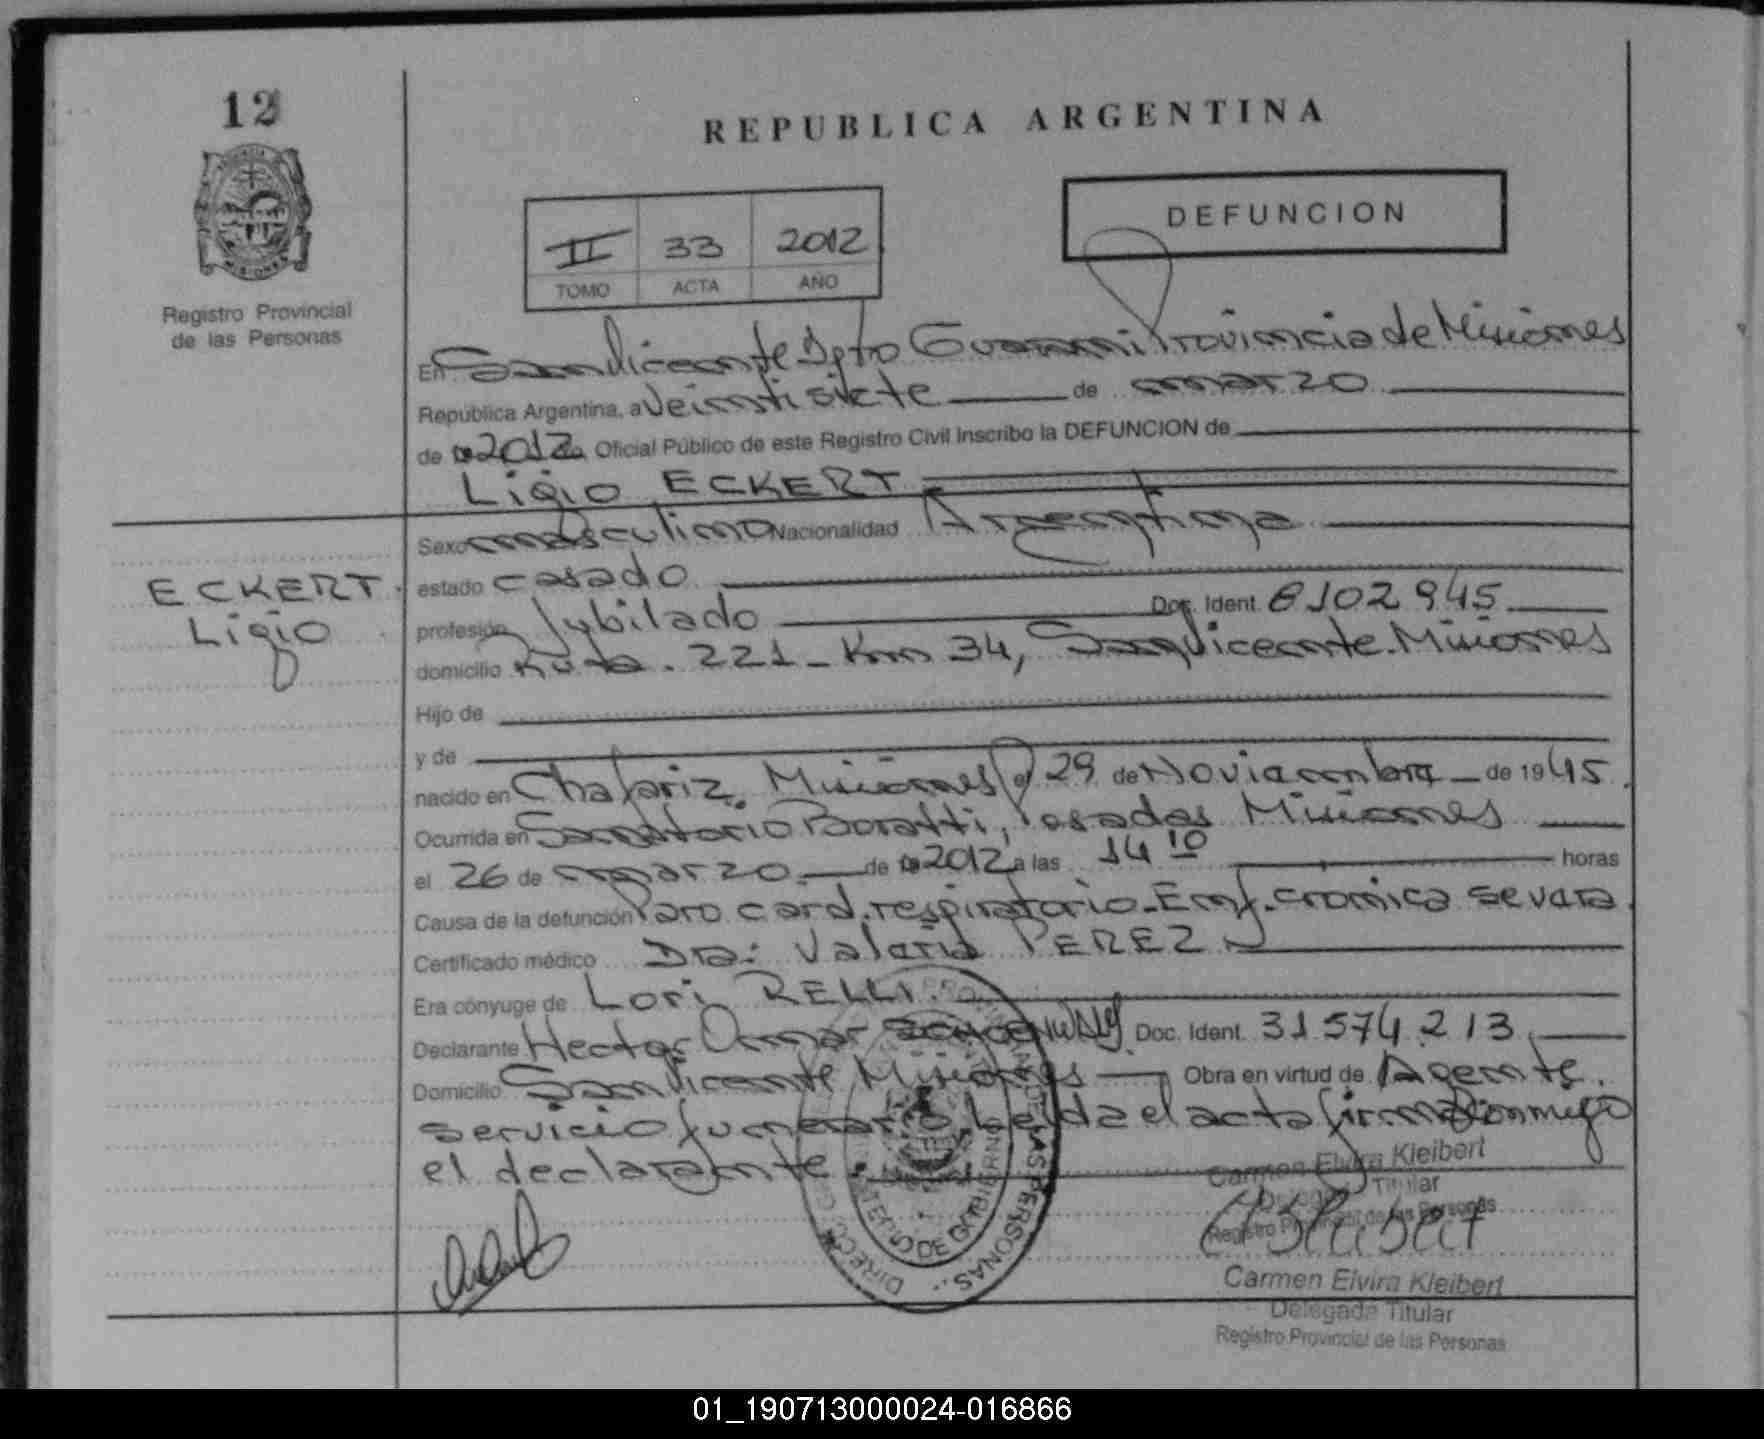 12
REPUBLICA ARGENTINA
DEFUNCION
II 33 2012
TOMO ACTA AÑO
Registro Provincial
de las Personas
En San Vicente Dpto Guarani Provincia de Misiones
República Argentina, a Veintisiete de marzo
de 2012 Oficial Público de este Registro Civil Inscribo la DEFUNCION de
Ligio ECKERT
Sexo masculino Nacionalidad Argentina
ECKERT
Ligio
estado casado
profesión Jubilado Doc. Ident. 8102945
domicilio Ruta. 221 - Km 34, San Vicente. Misiones
Hijo de
y de
nacido en Chafariz. Misiones el 29 de Noviembre de 1945.
Ocurrida en Sanatorio Boratti, Posadas Misiones
el 26 de marzo de 2012 a las 14 10 horas
Causa de la defunción Paro card. respiratorio - Enf. cronica severa.
Certificado médico Dra: Valeria PEREZ
Era cónyuge de Lori RELLI.
Declarante Hector Omar Doc. Ident. 31.574.213
Domicilio San Vicente Misiones Obra en virtud de Agente.
servicio funerario leida el acta firma conmigo
el declarante.
DE LAS PERSONAS
MINISTERIO DE GOBIERNO
Carmen Elvira Kleibert
Delegada Titular
Registro Provincial de las Personas
Carmen Elvira Kleibert
Delegada Titular
Registro Provincial de las Personas
01_190713000024-016866